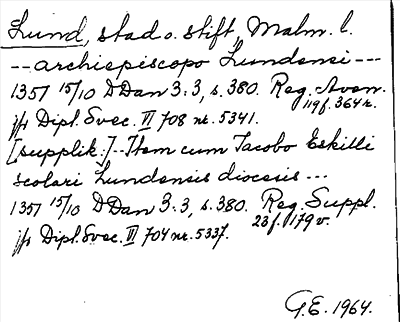 Lund, stad o. stift, Malm. l.
-- archiepiscopo Lundensi ---
1351 15/10 DDan 3:3, s. 380. Reg. Aven.
119 f. 364 r.
jfr Dipl. Svec. VI 708 nr. 5341.
[supplik:] -- Item cum Jacobo Eskilli
scolari Lundensis diocesis ---
1351 15/10 DDan 3:3, s. 380. Reg. Suppl.
23 f. 179 v.
jfr Dipl. Svec. VI 704 nr. 5337.
G.E. 1964.